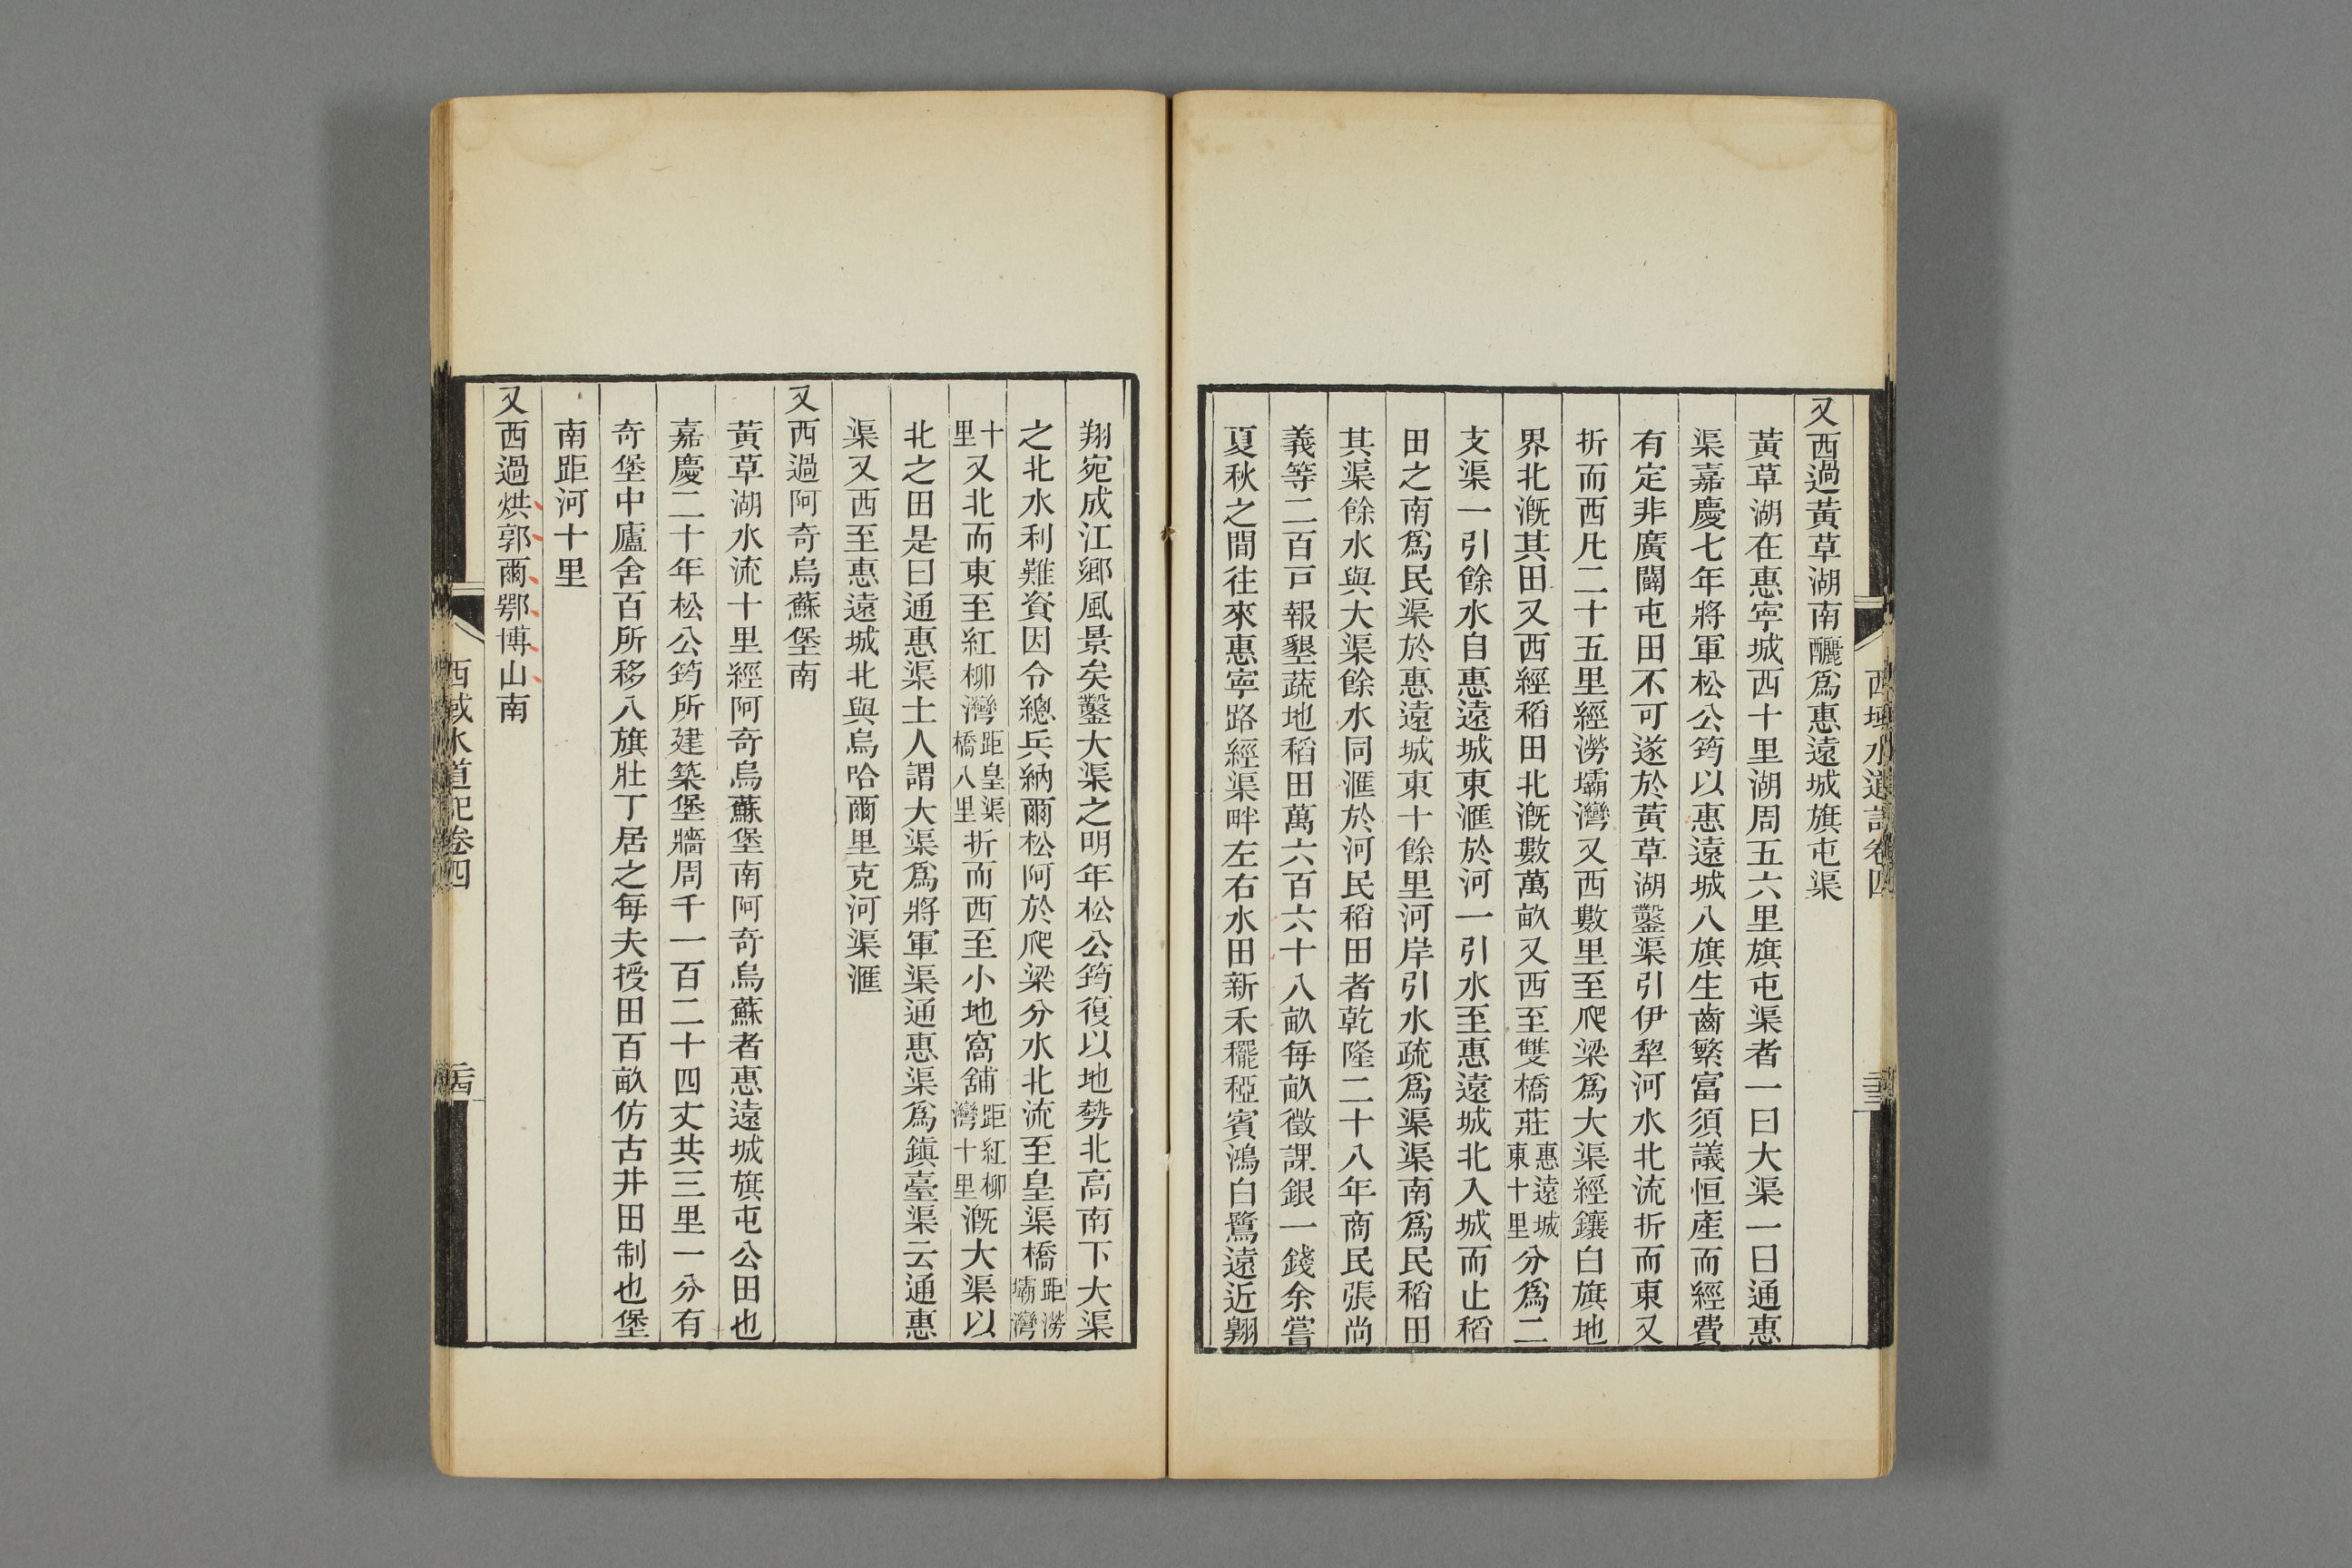 又西過黃草湖南釃爲惠遠城旗屯渠
黃草湖在惠寧城西十里湖周五六里旗屯渠者一曰大渠一曰通惠
渠嘉慶七年將軍松公筠以惠遠城八旗生齒繁富須議恒產而經費
有定非廣闢屯田不可遂於黃草湖鑿渠引伊犂河水北流折而東又
折而西凡二十五里經澇壩灣又西數里至爬梁爲大渠經鑲白旗地
界北漑其田又西經稻田北漑數萬畝又西至雙橋莊惠遠城東十里分爲二
支渠一引餘水自惠遠城東滙於河一引水至惠遠城北入城而止稻
田之南爲民渠於惠遠城東十餘里河岸引水疏爲渠渠南爲民稻田
其渠餘水與大渠餘水同滙於河民稻田者乾隆二十八年商民張尚
義等二百戸報墾蔬地稻田萬六百六十八畝每畝徵課銀一錢余嘗
夏秋之間往來惠寧路經渠畔左右水田新禾䆉稏賓鴻白鷺遠近翺
翔宛成江鄉風景矣鑿大渠之明年松公筠復以地勢北高南下大渠
之北水利難資因令總兵納爾松阿於爬梁分水北流至皇渠橋距澇壩灣
十里又北而東至紅柳灣距皇渠橋八里折而西至小地窩舖距紅柳灣十里漑大渠以
北之田是曰通惠渠土人謂大渠爲將軍渠通惠渠爲鎭臺渠云通惠
渠又西至惠遠城北與烏哈爾里克河渠滙
又西過阿奇烏蘇堡南
黃草湖水流十里經阿奇烏蘇堡南阿奇烏蘇者惠遠城旗屯公田也
嘉慶二十年松公筠所建築堡牆周千一百二十四丈共三里一分有
奇堡中廬舍百所移八旗壯丁居之每夫授田百畝仿古井田制也堡
南距河十里
又西過烘郭爾鄂博山南
西域水道記卷四
二十四